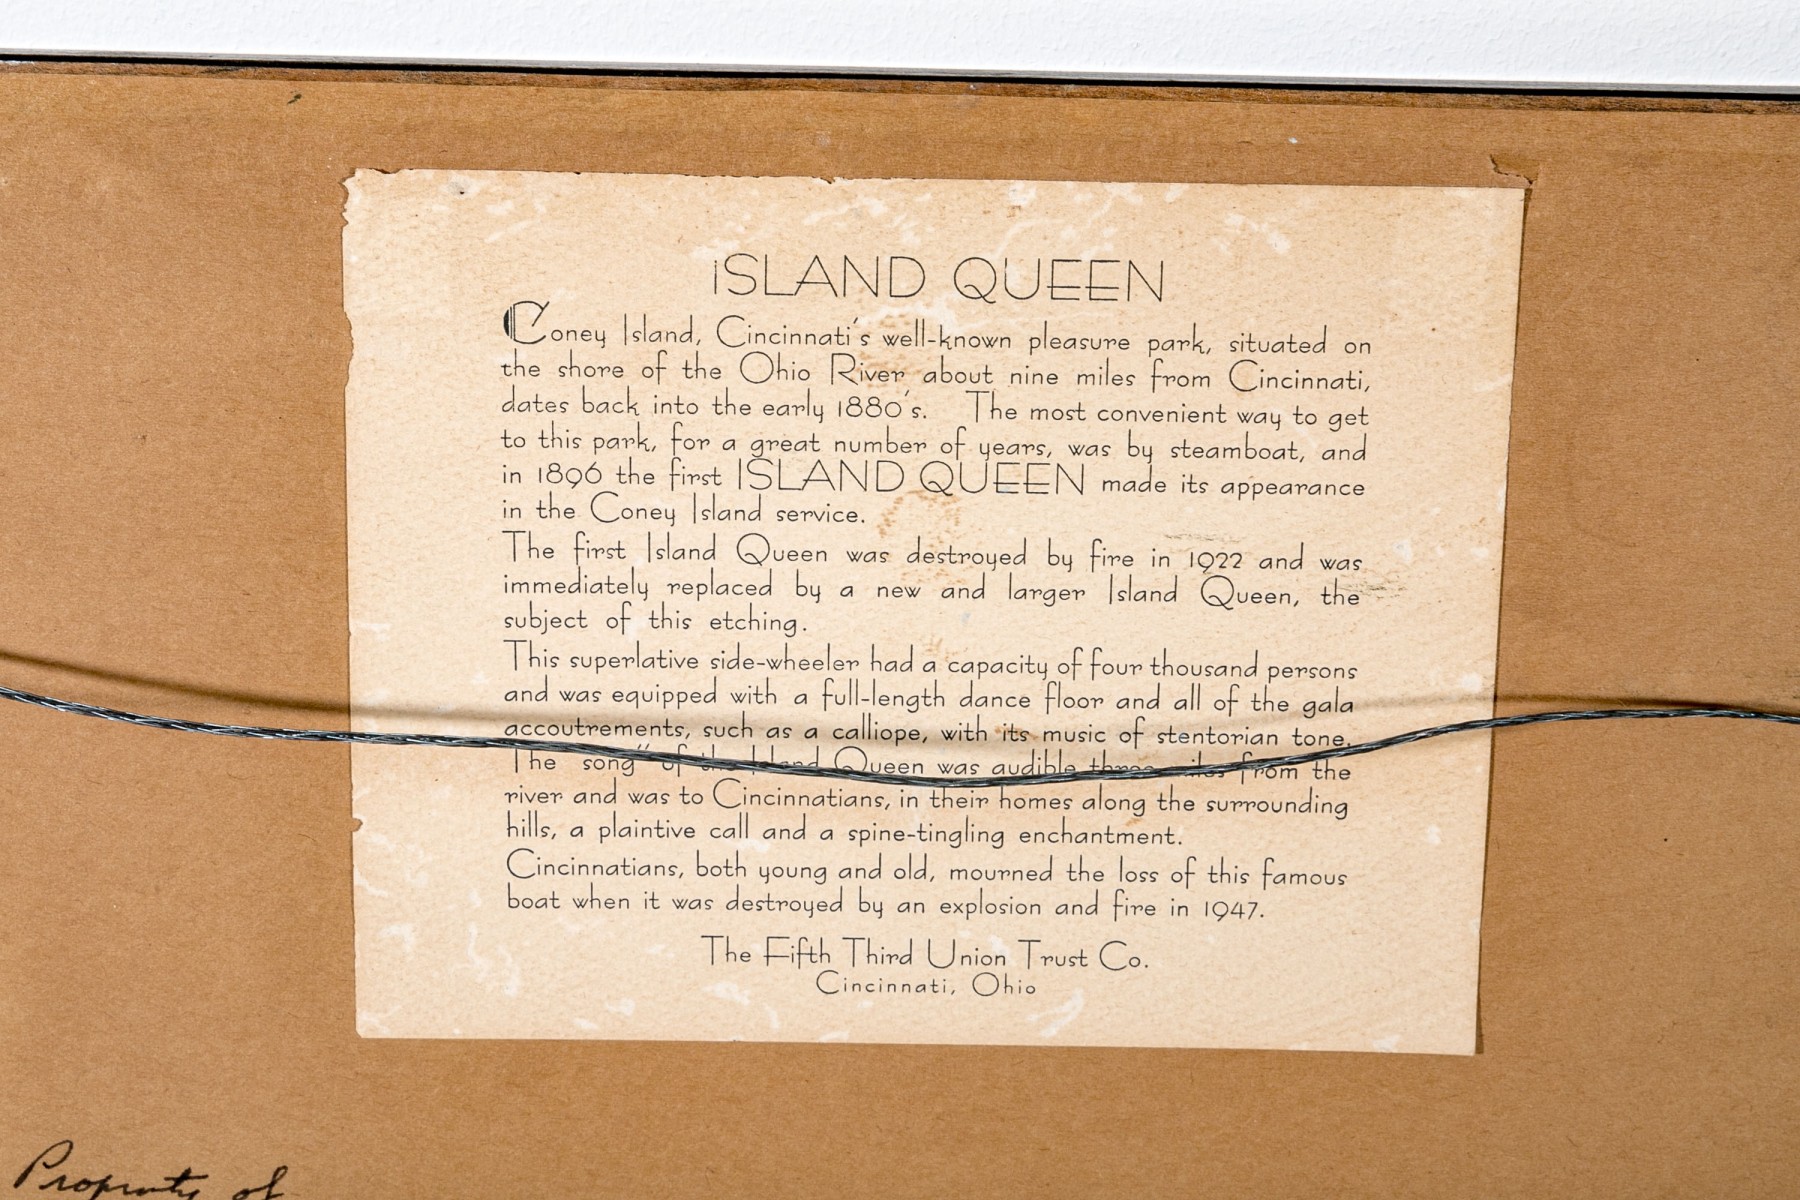 ISLAND QUEEN
Coney Island, Cincinnati's well-known pleasure park, situated on
the shore of the Ohio River about nine miles from Cincinnati,
dates back into the early 1880's. The most convenient way to get
to this park, for a great number of years, was by steamboat, and
in 1896 the first ISLAND QUEEN made its appearance
in the Coney Island service.
The first Island Queen was destroyed by fire in 1922 and was
immediately replaced by a new and larger Island Queen, the
subject of this etching.
This superlative side-wheeler had a capacity of four thousand persons
and was equipped with a full-length dance floor and all of the gala
accoutrements, such as a calliope, with its music of stentorian tone.
The "song" of the Island Queen was audible three miles from the
river and was to Cincinnatians, in their homes along the surrounding
hills, a plaintive call and a spine-tingling enchantment.
Cincinnatians, both young and old, mourned the loss of this famous
boat when it was destroyed by an explosion and fire in 1947.
The Fifth Third Union Trust Co.
Cincinnati, Ohio
Property of